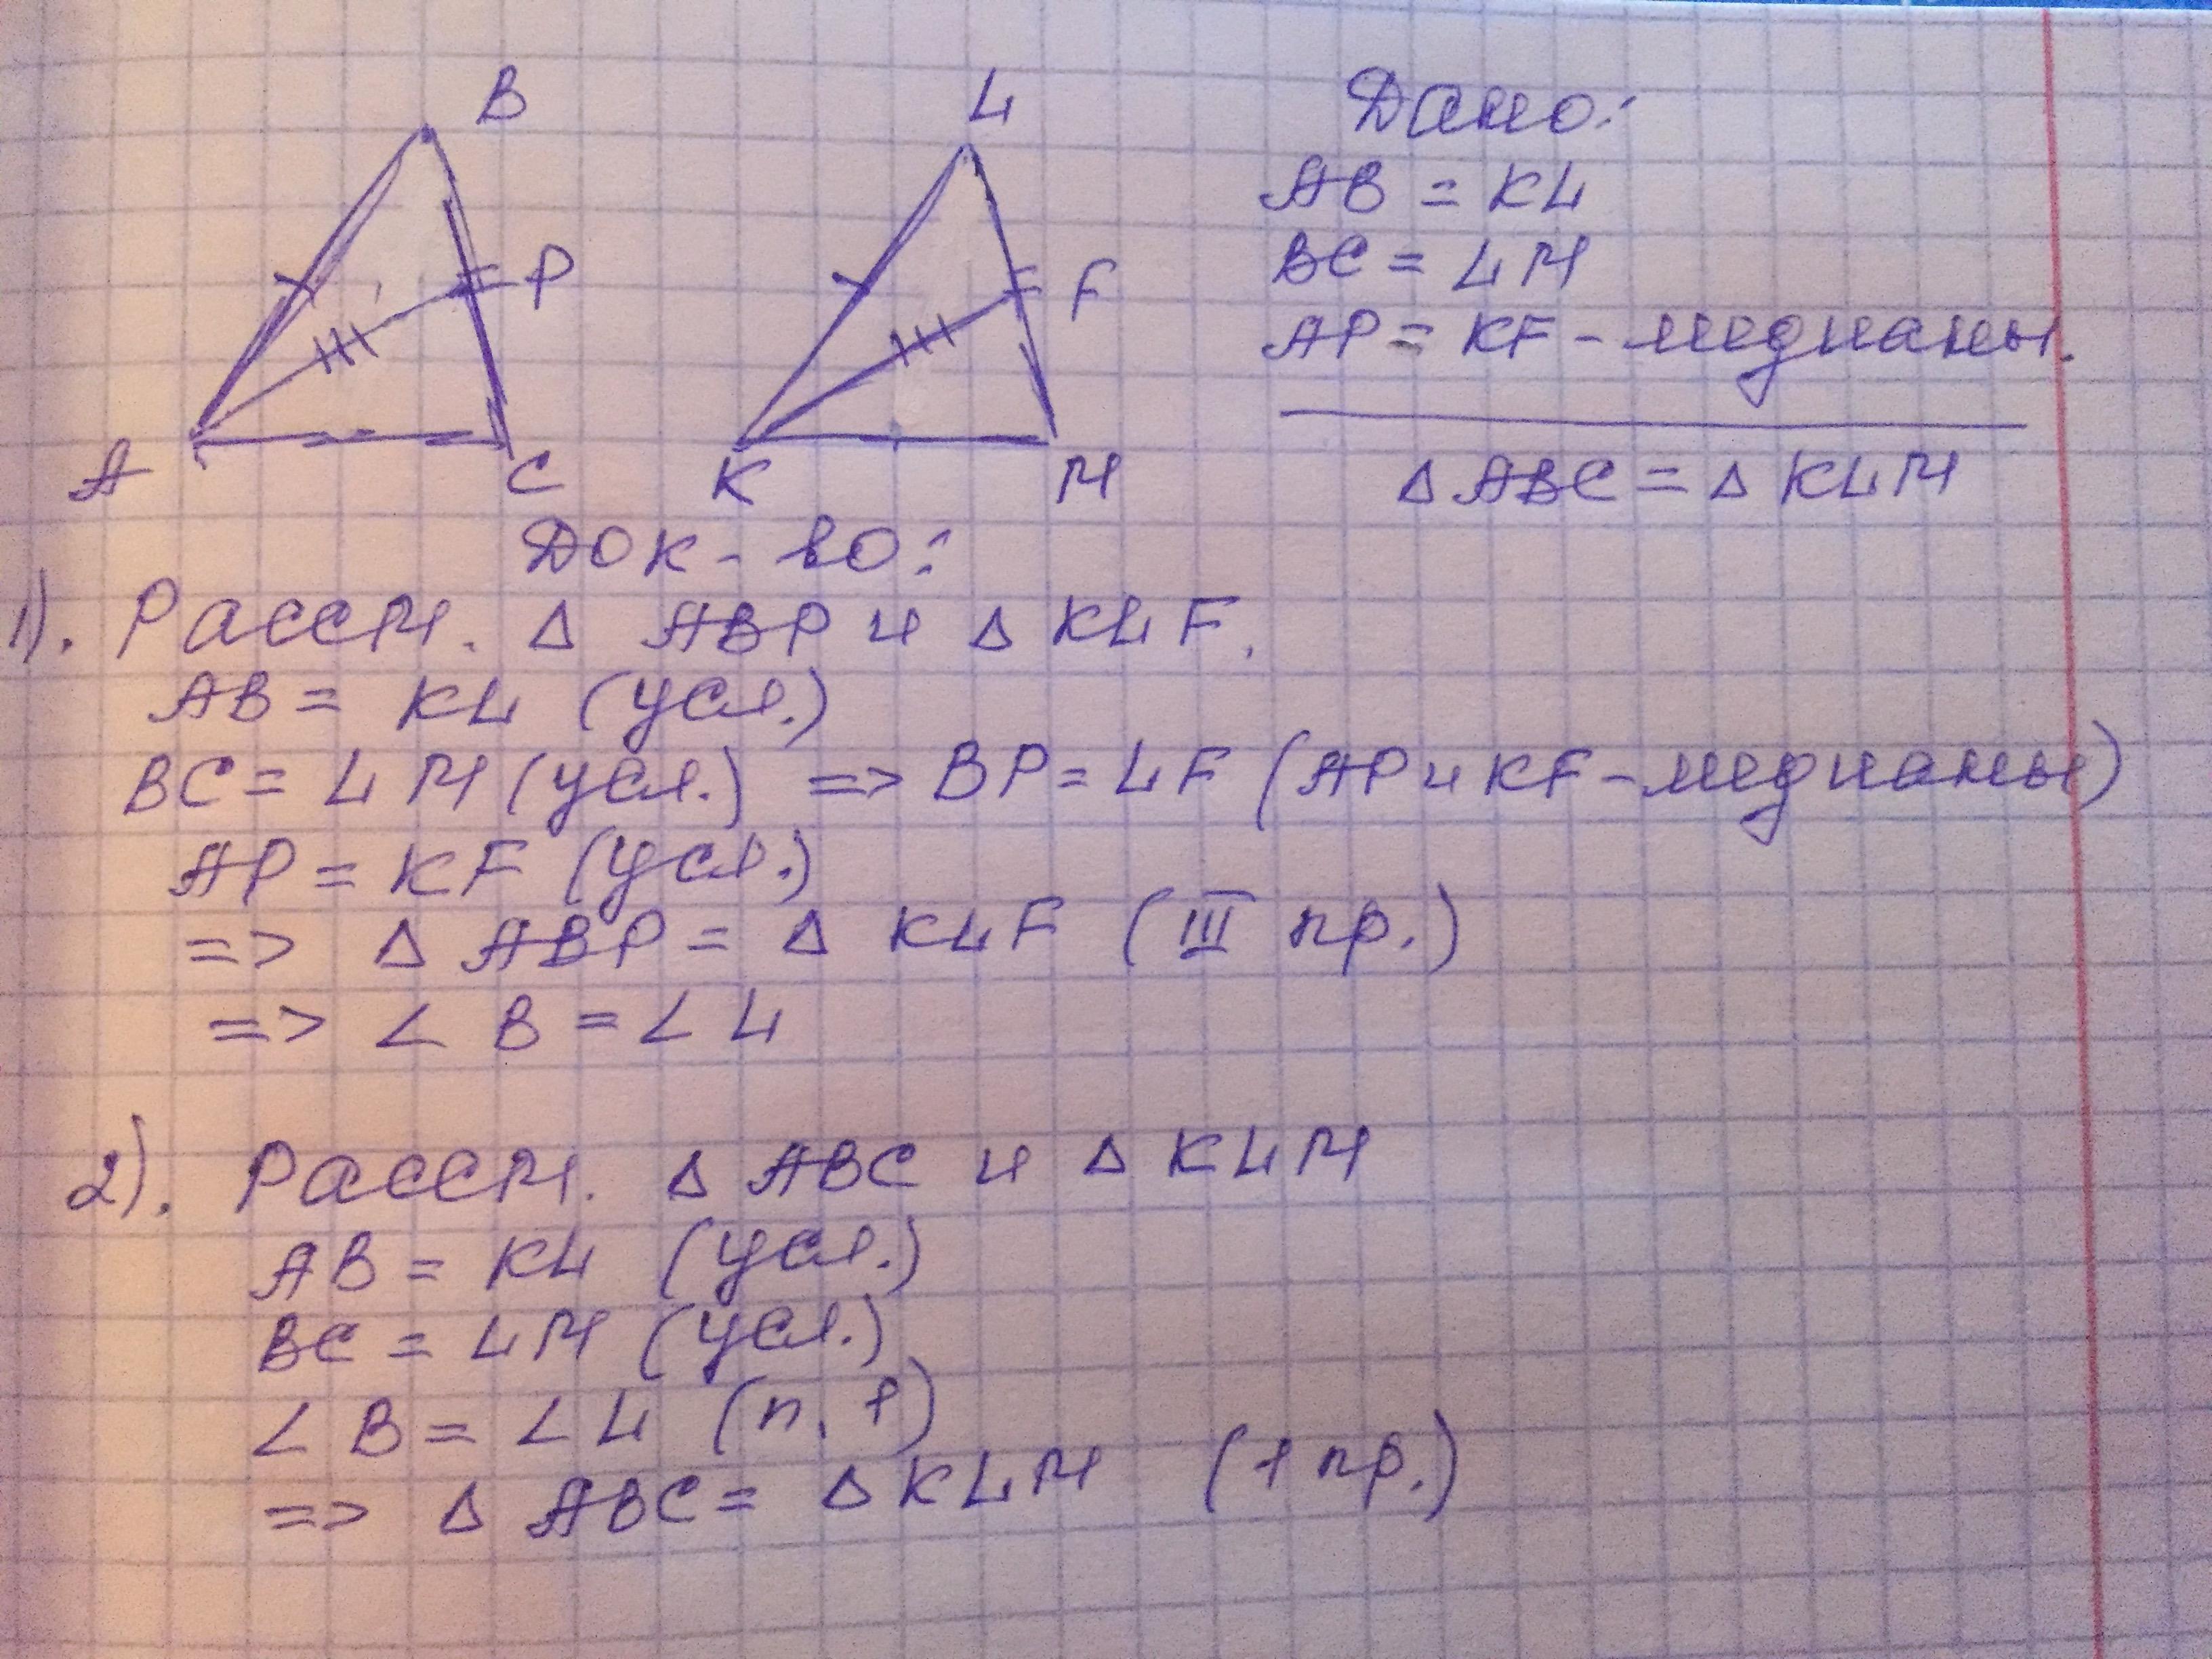 B
L
P
F
A
C
K
M
Дано:
AB = KL
BC = LM
AP = KF - медианы.
Δ ABC = Δ KLM
Док-во:
1). Рассм. Δ ABP и Δ KLF.
AB = KL (усл.)
BC = LM (усл.) => BP = LF (AP и KF - медианы)
AP = KF (усл.)
=> Δ ABP = Δ KLF (III пр.)
=> ∠ B = ∠ L
2). Рассм. Δ ABC и Δ KLM
AB = KL (усл.)
BC = LM (усл.)
∠ B = ∠ L (п. 1)
=> Δ ABC = Δ KLM (1 пр.)